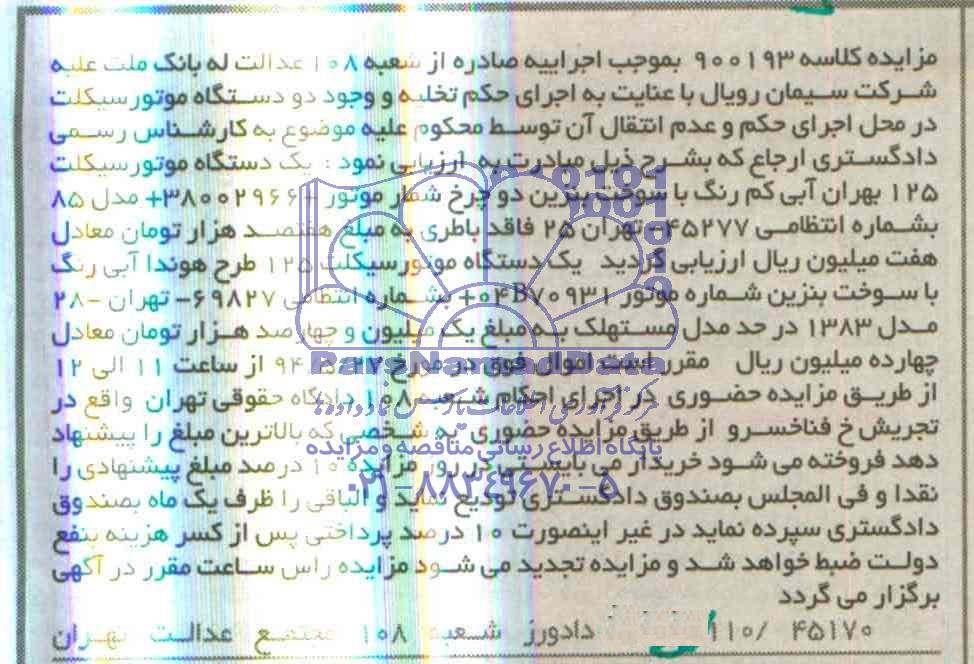 مزایده کلاسه ۹۰۰۱۹۳ بموجب اجراییه صادره از شعبه ۱۰۸ عدالت له بانک ملت علیه
شرکت سیمان رویال با عنایت به اجرای حکم تخلیه و وجود دو دستگاه موتورسیکلت
در محل اجرای حکم و عدم انتقال آن توسط محکوم علیه موضوع به کارشناس رسمی
دادگستری ارجاع که بشرح ذیل مبادرت به ارزیابی نمود : یک دستگاه موتورسیکلت
۱۲۵ بهران آبی کم رنگ با سوخت بنزین دو چرخ شمار موتور ۳۸۰۰۲۹۶۶+ مدل ۸۵
بشماره انتظامی ۴۵۲۷۷- تهران ۲۵ فاقد باطری به مبلغ هفتصد هزار تومان معادل
هفت میلیون ریال ارزیابی گردید یک دستگاه موتورسیکلت ۱۲۵ طرح هوندا آبی رنگ
با سوخت بنزین شماره موتور ۰۴B۷۰۹۳۱+ بشماره انتظامی ۶۹۸۲۷- تهران -۲۸
مدل ۱۳۸۳ در حد مدل مستهلک به مبلغ یک میلیون و چهارصد هزار تومان معادل
چهارده میلیون ریال مقرر است اموال فوق در مورخ ۹۴ از ساعت ۱۱ الی ۱۲
از طریق مزایده حضوری در اجرای احکام شعبه ۱۰۸ دادگاه حقوقی تهران واقع در
تجریش خ فناخسرو از طریق مزایده حضوری به شخصی که بالاترین مبلغ را پیشنهاد
دهد فروخته می شود خریدار می بایستی در روز مزایده ۱۰ درصد مبلغ پیشنهادی را
نقدا و فی المجلس بصندوق دادگستری تودیع نماید و الباقی را ظرف یک ماه بصندوق
دادگستری سپرده نماید در غیر اینصورت ۱۰ درصد پرداختی پس از کسر هزینه بنفع
دولت ضبط خواهد شد و مزایده تجدید می شود مزایده راس ساعت مقرر در آگهی
برگزار می گردد
۱۱۰/ ۴۵۱۷۰ دادورز شعبه ۱۰۸ مجتمع عدالت تهران
ParsNamadData
پایگاه اطلاع رسانی مناقصه و مزایده
۰۲۱-۸۸۳۴۹۶۷۰-۵